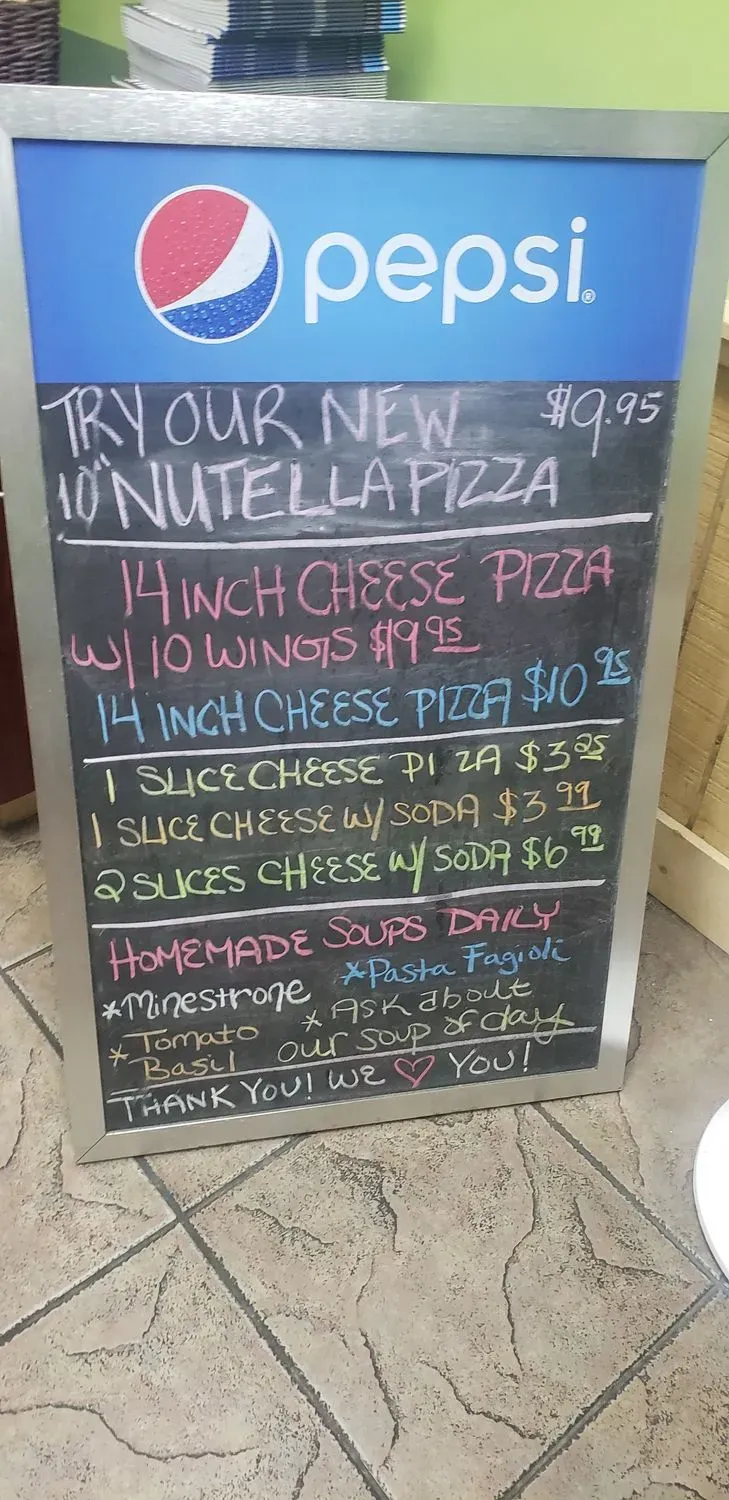 pepsi®
TRY OUR NEW $9.95
10" NUTELLA PIZZA
14 INCH CHEESE PIZZA
W/ 10 WINGS $19.95
14 INCH CHEESE PIZZA $10.95
1 SLICE CHEESE PI ZA $3.25
1 SLICE CHEESE W/ SODA $3.99
2 SLICES CHEESE W/ SODA $6.99
HOMEMADE SOUPS DAILY
*Minestrone *Pasta Fagioli
*Tomato Basil *Ask about our soup of day
THANK YOU! WE ♡ YOU!